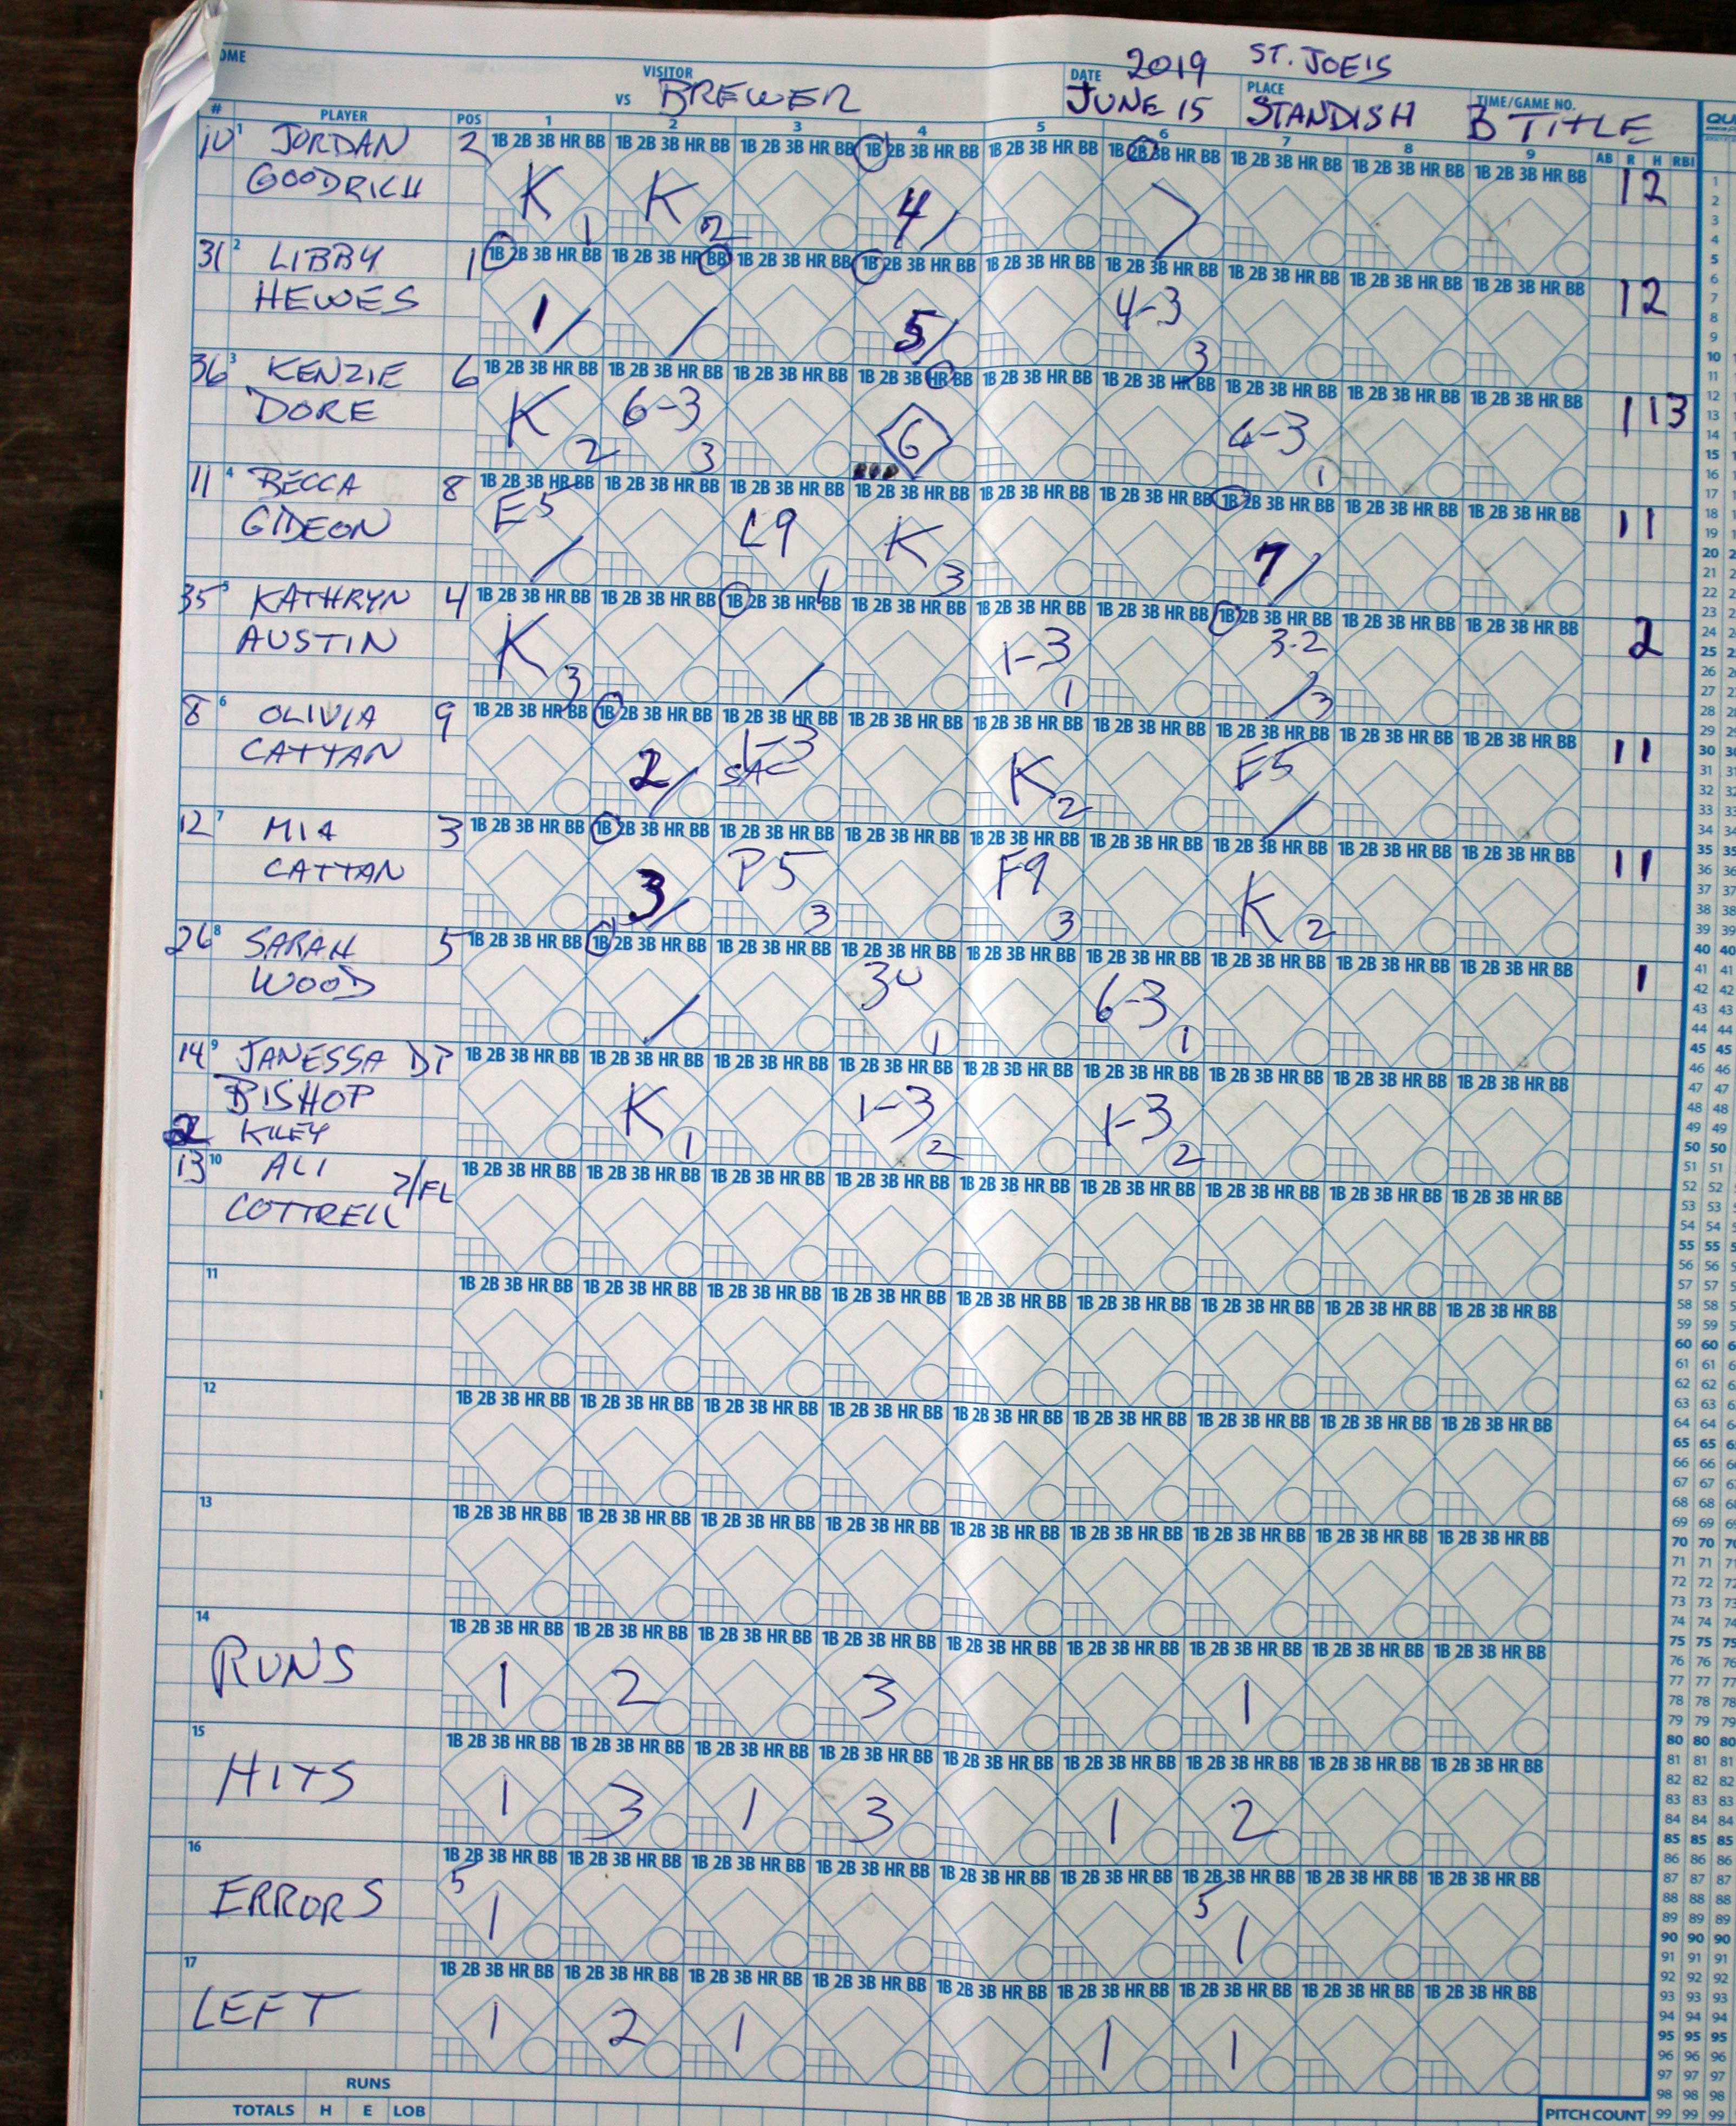 OME VISITOR VS BREWER DATE 2019 JUNE 15 PLACE ST. JOE'S STANDISH TIME/GAME NO. B TITLE
# PLAYER POS 1 2 3 4 5 6 7 8 9 AB R H RBI
10 1 JORDAN 2 1B 2B 3B HR BB 1B 2B 3B HR BB 1B 2B 3B HR BB 1B 2B 3B HR BB 1B 2B 3B HR BB 1B 2B 3B HR BB 1B 2B 3B HR BB 1B 2B 3B HR BB 1B 2B 3B HR BB
GOODRICH K 1 K 2 4 1 2
31 2 LIBBY 1 1B 2B 3B HR BB 1B 2B 3B HR BB 1B 2B 3B HR BB 1B 2B 3B HR BB 1B 2B 3B HR BB 1B 2B 3B HR BB 1B 2B 3B HR BB 1B 2B 3B HR BB 1B 2B 3B HR BB
HEWES 1 5 4-3 3 1 2
36 3 KENZIE 6 1B 2B 3B HR BB 1B 2B 3B HR BB 1B 2B 3B HR BB 1B 2B 3B HR BB 1B 2B 3B HR BB 1B 2B 3B HR BB 1B 2B 3B HR BB 1B 2B 3B HR BB 1B 2B 3B HR BB
DORE K 2 6-3 3 6 6-3 1 1 1 3
11 4 BECCA 8 1B 2B 3B HR BB 1B 2B 3B HR BB 1B 2B 3B HR BB 1B 2B 3B HR BB 1B 2B 3B HR BB 1B 2B 3B HR BB 1B 2B 3B HR BB 1B 2B 3B HR BB 1B 2B 3B HR BB
GIDEON E5 L9 1 K 3 7 1 1
35 5 KATHRYN 4 1B 2B 3B HR BB 1B 2B 3B HR BB 1B 2B 3B HR BB 1B 2B 3B HR BB 1B 2B 3B HR BB 1B 2B 3B HR BB 1B 2B 3B HR BB 1B 2B 3B HR BB 1B 2B 3B HR BB
AUSTIN K 3 1-3 1 3-2 3 2
8 6 OLIVIA 9 1B 2B 3B HR BB 1B 2B 3B HR BB 1B 2B 3B HR BB 1B 2B 3B HR BB 1B 2B 3B HR BB 1B 2B 3B HR BB 1B 2B 3B HR BB 1B 2B 3B HR BB 1B 2B 3B HR BB
CATTAN 2 1-3 SAC K 2 E5 1 1
12 7 MIA 3 1B 2B 3B HR BB 1B 2B 3B HR BB 1B 2B 3B HR BB 1B 2B 3B HR BB 1B 2B 3B HR BB 1B 2B 3B HR BB 1B 2B 3B HR BB 1B 2B 3B HR BB 1B 2B 3B HR BB
CATTAN 3 P5 3 F9 3 K 2 1 1
26 8 SARAH 5 1B 2B 3B HR BB 1B 2B 3B HR BB 1B 2B 3B HR BB 1B 2B 3B HR BB 1B 2B 3B HR BB 1B 2B 3B HR BB 1B 2B 3B HR BB 1B 2B 3B HR BB 1B 2B 3B HR BB
WOOD 3U 1 6-3 1 1
14 9 JANESSA DP 1B 2B 3B HR BB 1B 2B 3B HR BB 1B 2B 3B HR BB 1B 2B 3B HR BB 1B 2B 3B HR BB 1B 2B 3B HR BB 1B 2B 3B HR BB 1B 2B 3B HR BB 1B 2B 3B HR BB
BISHOP K 1 1-3 2 1-3 2
2 KILEY
13 10 ALI 7/FL 1B 2B 3B HR BB 1B 2B 3B HR BB 1B 2B 3B HR BB 1B 2B 3B HR BB 1B 2B 3B HR BB 1B 2B 3B HR BB 1B 2B 3B HR BB 1B 2B 3B HR BB 1B 2B 3B HR BB
COTTRELL
11 1B 2B 3B HR BB 1B 2B 3B HR BB 1B 2B 3B HR BB 1B 2B 3B HR BB 1B 2B 3B HR BB 1B 2B 3B HR BB 1B 2B 3B HR BB 1B 2B 3B HR BB 1B 2B 3B HR BB
12 1B 2B 3B HR BB 1B 2B 3B HR BB 1B 2B 3B HR BB 1B 2B 3B HR BB 1B 2B 3B HR BB 1B 2B 3B HR BB 1B 2B 3B HR BB 1B 2B 3B HR BB 1B 2B 3B HR BB
13 1B 2B 3B HR BB 1B 2B 3B HR BB 1B 2B 3B HR BB 1B 2B 3B HR BB 1B 2B 3B HR BB 1B 2B 3B HR BB 1B 2B 3B HR BB 1B 2B 3B HR BB 1B 2B 3B HR BB
14 1B 2B 3B HR BB 1B 2B 3B HR BB 1B 2B 3B HR BB 1B 2B 3B HR BB 1B 2B 3B HR BB 1B 2B 3B HR BB 1B 2B 3B HR BB 1B 2B 3B HR BB 1B 2B 3B HR BB
RUNS 1 2 3 1
15 1B 2B 3B HR BB 1B 2B 3B HR BB 1B 2B 3B HR BB 1B 2B 3B HR BB 1B 2B 3B HR BB 1B 2B 3B HR BB 1B 2B 3B HR BB 1B 2B 3B HR BB 1B 2B 3B HR BB
HITS 1 3 1 3 1 2
16 1B 2B 3B HR BB 1B 2B 3B HR BB 1B 2B 3B HR BB 1B 2B 3B HR BB 1B 2B 3B HR BB 1B 2B 3B HR BB 1B 2B 3B HR BB 1B 2B 3B HR BB 1B 2B 3B HR BB
ERRORS 5 1 5 1
17 1B 2B 3B HR BB 1B 2B 3B HR BB 1B 2B 3B HR BB 1B 2B 3B HR BB 1B 2B 3B HR BB 1B 2B 3B HR BB 1B 2B 3B HR BB 1B 2B 3B HR BB 1B 2B 3B HR BB
LEFT 1 2 1 1 1
RUNS
TOTALS H E LOB PITCH COUNT